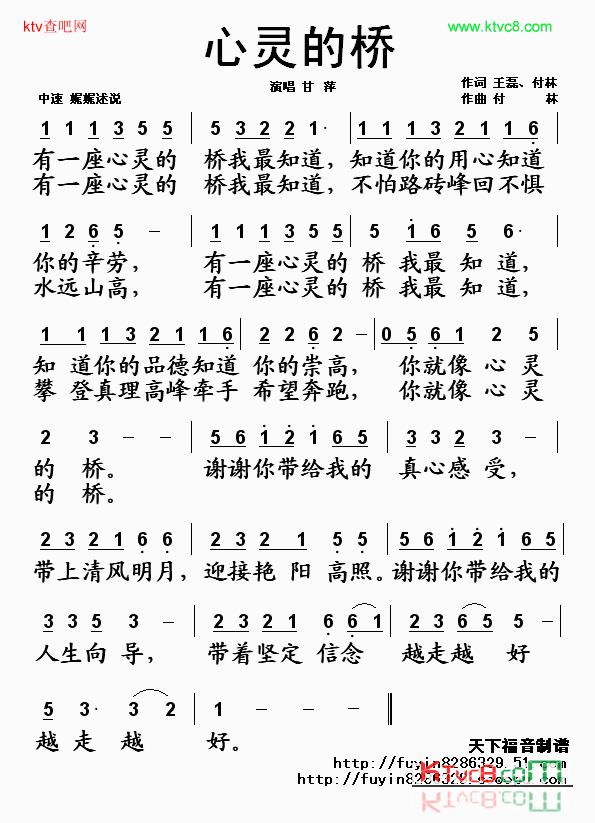 ktv查吧网
www.ktvc8.com
心灵的桥
演唱 甘 萍
作词 王磊、付林
作曲 付 林
中速 娓娓述说
1 1 1 3 5 5 | 5 3 2 2 1· | 1 1 1 3 2 1 1 6 |
有一座心灵的 桥我最知道，知道你的用心知道
有一座心灵的 桥我最知道，不怕路砖峰回不惧
1 2 6 5 - | 1 1 1 3 5 5 | 5 1 6 5 6· |
你的辛劳， 有一座心灵的 桥 我最 知 道，
水远山高， 有一座心灵的 桥 我最 知 道，
1 1 1 3 2 1 1 6 | 2 2 6 2 - | 0 5 6 1 2 5 |
知 道你的品德知道 你的崇高， 你就像 心 灵
攀 登真理高峰牵手 希望奔跑， 你就像 心 灵
2 3 - - | 5 6 1 2 1 6 5 | 3 3 2 3 - |
的 桥。 谢谢你带给我的 真心感 受，
的 桥。
2 3 2 1 6 6 | 2 3 2 1 5 5 | 5 6 1 2 1 6 5 |
带上清风明月，迎接艳 阳 高照。谢谢你带给我的
3 3 5 3 - | 2 3 2 1 6 6 1 | 2 3 6 5 5 |
人生向 导， 带着坚定 信念 越走越 好
5 3· 3 2 | 1 - - - ‖
越 走 越 好。
天下福音制谱
http://fuyin8286329.51.com
KTvc8.com